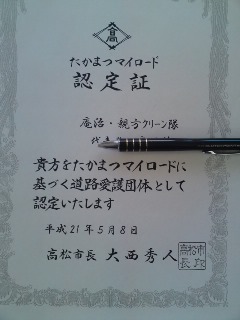 高
たかまつマイロード
認定証
庵治・親方クリーン隊
代表
貴方をたかまつマイロードに
基づく道路愛護団体として
認定いたします
平成21年5月8日
高松市長 大西秀人
高松市長印